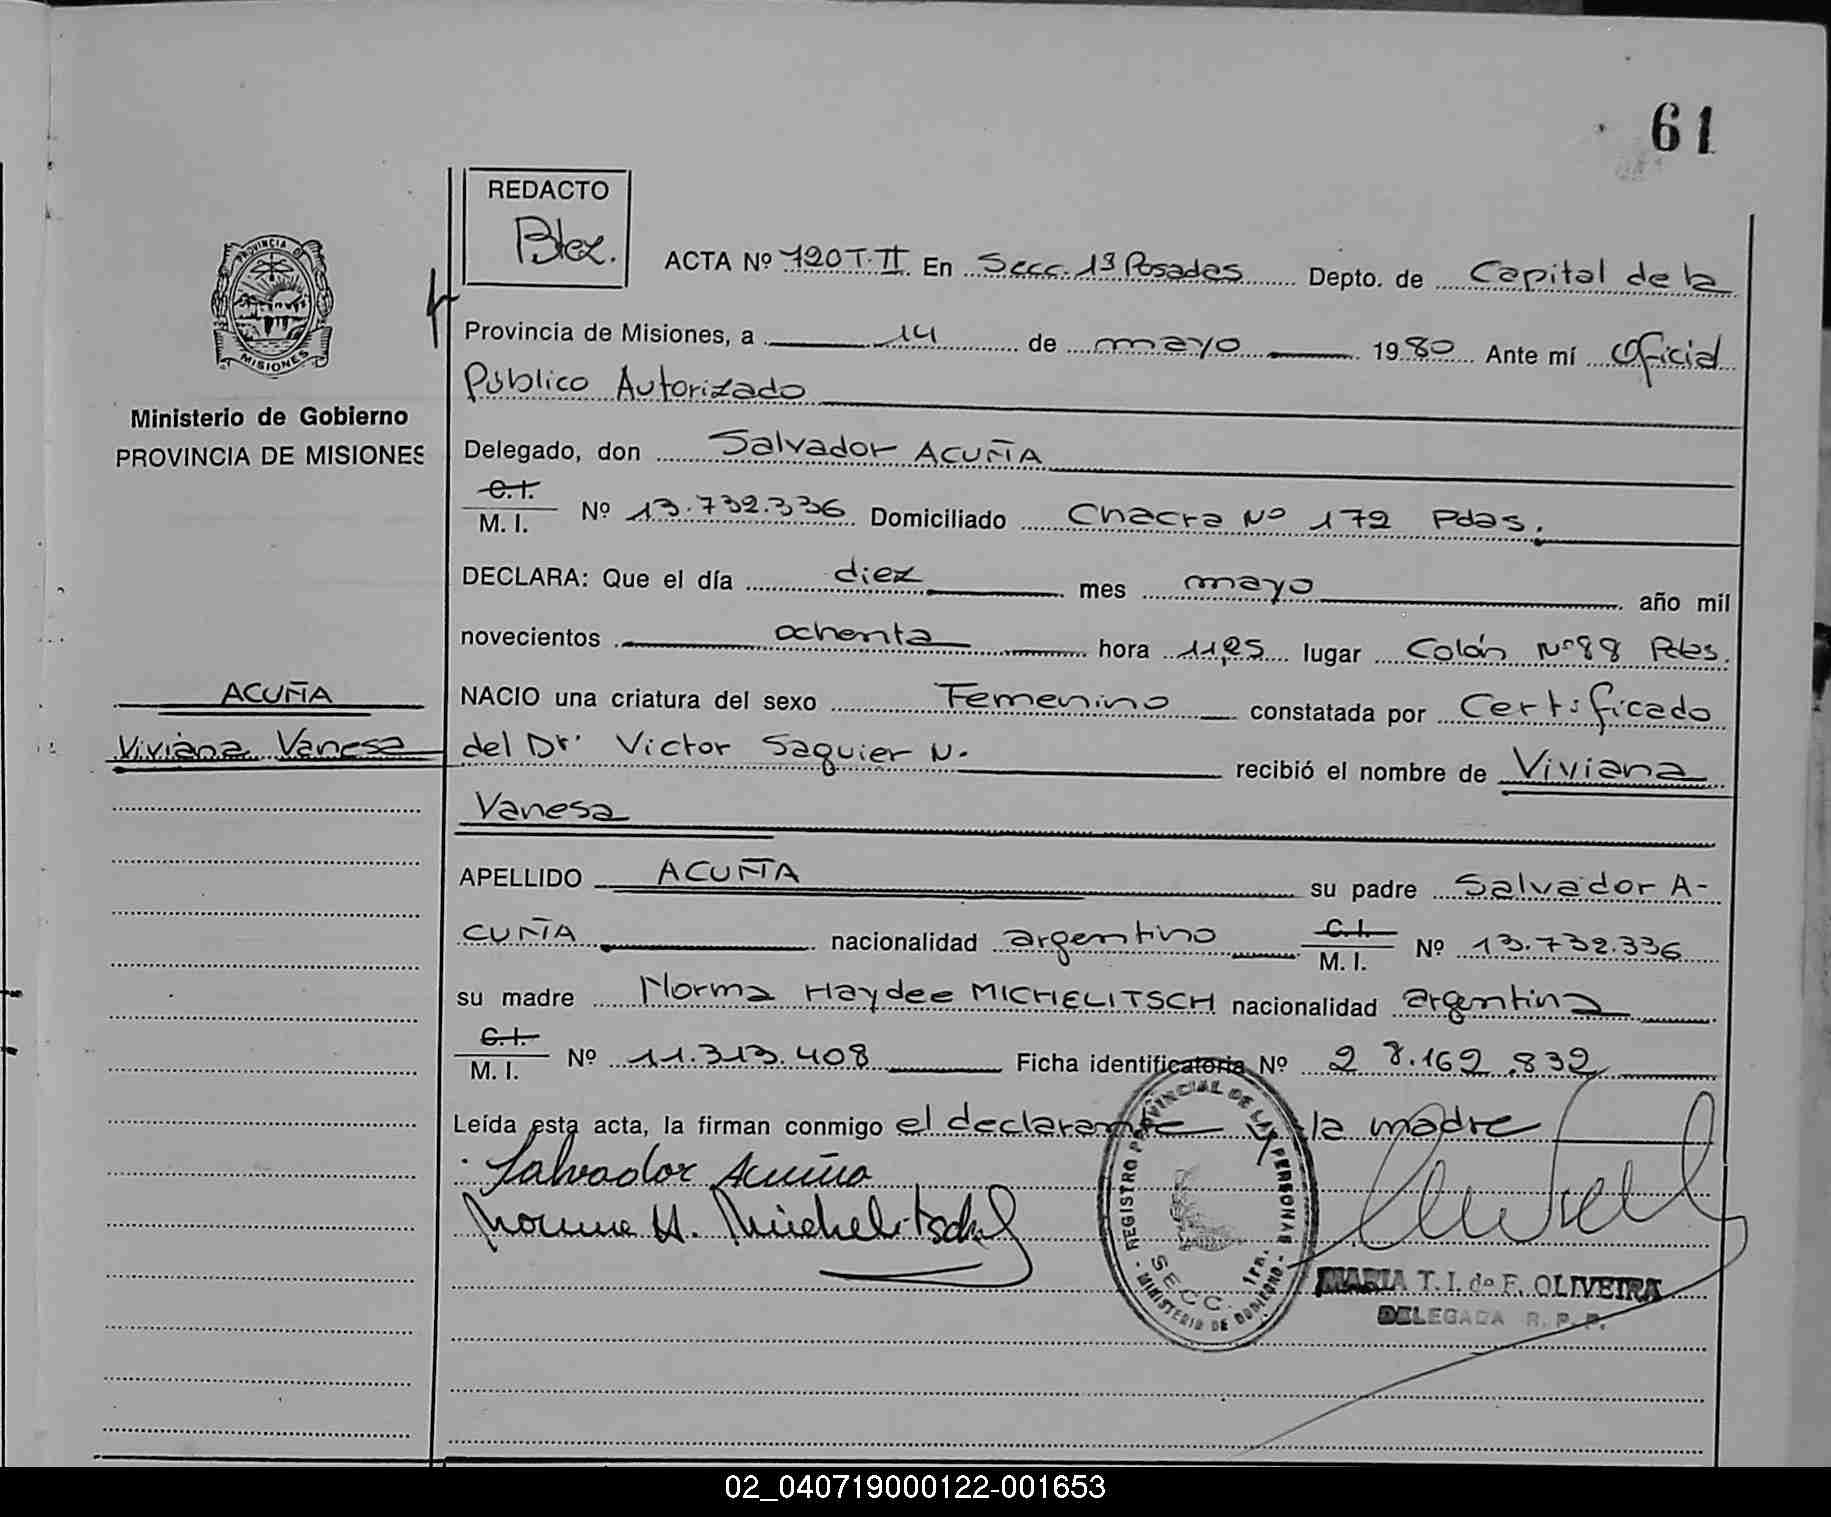 61
REDACTO
PROVINCIA DE
MISIONES
Ministerio de Gobierno
PROVINCIA DE MISIONES
ACTA Nº 720 T. II En Secc. 1ª Posadas Depto. de Capital de la
Provincia de Misiones, a 14 de mayo 1980 Ante mí Oficial
Público Autorizado
Delegado, don Salvador ACUÑA
C.I.
M. I. Nº 13.732.336 Domiciliado Chacra Nº 172 Pdas.
DECLARA: Que el día diez mes mayo año mil
novecientos ochenta hora 11,25 lugar Colón Nº 88 Pdas.
ACUÑA
NACIO una criatura del sexo Femenino constatada por Certificado
Viviana Vanesa
del Dr. Victor Saguier N. recibió el nombre de Viviana
Vanesa
APELLIDO ACUÑA su padre Salvador A-
CUÑA nacionalidad argentino C.I. M. I. Nº 13.732.336
su madre Norma Haydee MICHELITSCH nacionalidad argentina
C.I.
M. I. Nº 11.313.408 Ficha identificatoria Nº 28.162.832
Leída esta acta, la firman conmigo el declarante y la madre
Salvador Acuña
Norma H. Michelitsch
REGISTRO PROVINCIAL DE LAS PERSONAS
SECC. 1ra.
- MINISTERIO DE GOBIERNO -
MARIA T. I. de F. OLIVEIRA
DELEGADA R. P. P.
02_040719000122-001653